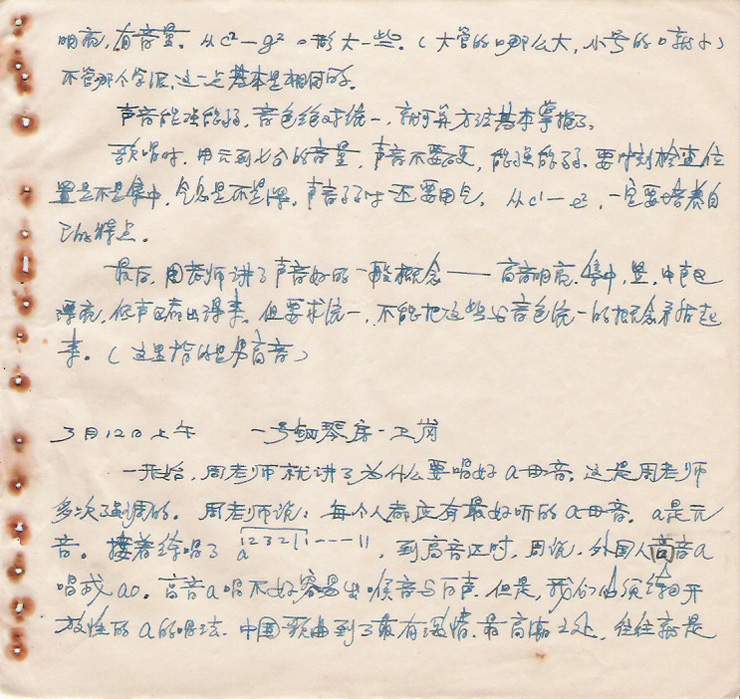 明亮,有音量。从c²—g²口形大一些。(大管的口那么大,小号的口就小)
不管哪个字,这一点基本是相同的。
声音能强能弱,音色绝对统一,就可算方法基本掌握了。
歌唱时,用六到七分的音量,声音不要硬,能强能弱。要时刻检查位
置是不是集中,气息是不是深。声音弱时还要用气。从c¹—e²,一定要培养自
己的特点。
最后,周老师讲了声音好的一般概念——高音明亮,集中,竖,中声区
漂亮,低声区也出得来。但要求统一,不能把这些与音色统一的概念矛盾起
来。(这里指的是男高音)
3月12日上午 一号钢琴房-卫岗
一开始,周老师就讲了为什么要唱好a母音。这是周老师
多次强调的。周老师说:每个人都应有最好听的a母音。a是元
音。接着练唱了a 123211----11,到高音区时,周说,外国人高音a
唱成ao。高音a唱不好容易出喉音与白声。但是,我们必须练习开
放性的a的唱法。中国歌曲到了最有激情、最高潮之处,往往就是